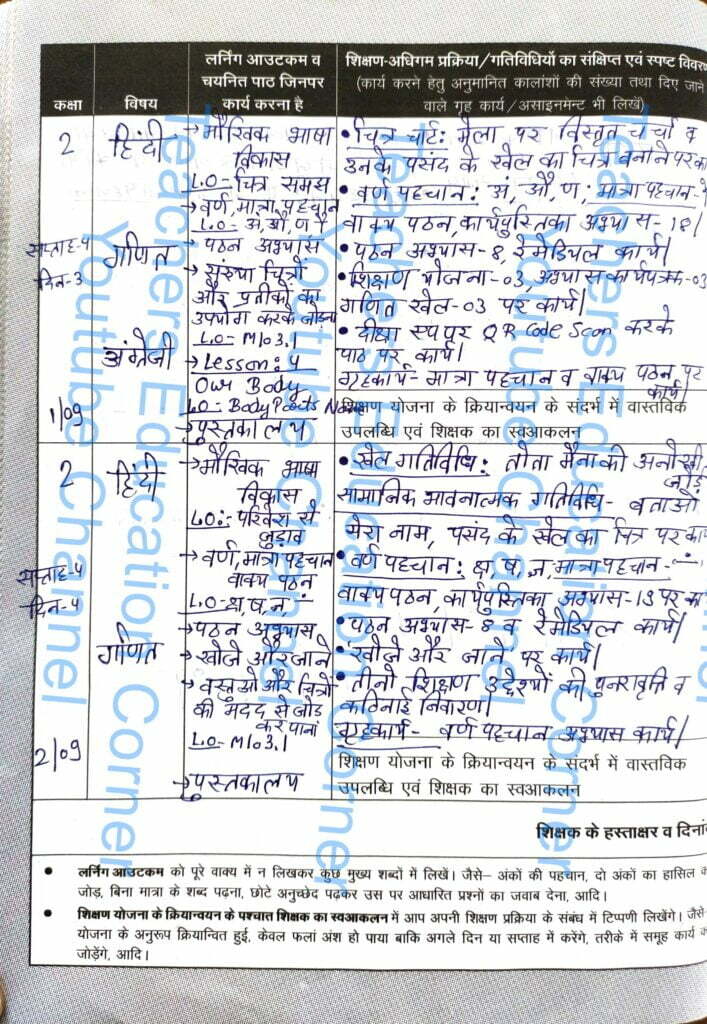 कक्षा
विषय
लर्निंग आउटकम व
चयनित पाठ जिनपर
कार्य करना है
शिक्षण-अधिगम प्रक्रिया/गतिविधियों का संक्षिप्त एवं स्पष्ट विवर
(कार्य करने हेतु अनुमानित कालांशों की संख्या तथा दिए जाने
वाले गृह कार्य/असाइनमेंट भी लिखें)
2
हिंदी
सप्ताह-4
दिन-3
गणित
अंग्रेजी
1/09
→ मौखिक भाषा
विकास
L.O- चित्र समझ
→ वर्ण, मात्रा पहचान
L.O- अं, औ, ण ी
→ पठन अभ्यास
→ संख्या चित्रों
और प्रतीकों का
उपयोग करके जोड़ना
L.O- M103.1
→ Lesson: 4
Our Body
L.O- Body Parts Name
→ पुस्तकालय
• चित्र चार्ट: मेला पर विस्तृत चर्चा व
उनके पसंद के खेल का चित्र बनाने पर का
• वर्ण पहचान: अं, औ, ण, मात्रा पहचान-
वाक्य पठन, कार्यपुस्तिका अभ्यास- 18।
• पठन अभ्यास-8, रेमेडियल कार्य।
• शिक्षण योजना-03, अभ्यास कार्यपत्रक-03
गणित खेल-03 पर कार्य।
• दीक्षा एप पर QR Code Scan करके
पाठ पर कार्य।
गृहकार्य- मात्रा पहचान व वाक्य पठन पर
कार्य।
शिक्षण योजना के क्रियान्वयन के संदर्भ में वास्तविक
उपलब्धि एवं शिक्षक का स्वआकलन
2
हिंदी
सप्ताह-4
दिन-4
गणित
2/09
→ मौखिक भाषा
विकास
L.O:- परिवेश से
जुड़ाव
→ वर्ण, मात्रा पहचान
वाक्य पठन
L.O- क्ष, ष, ज्ञ,
→ पठन अभ्यास
→ खोजे और जाने
→ वस्तुओं और चित्रों
की मदद से जोड़
कर पाना
L.O- M103.1
→ पुस्तकालय
• खेल गतिविधि: तोता मैना की अनोखी
जोड़ी
सामाजिक भावनात्मक गतिविधि- बताओ
मेरा नाम, पसंद के खेल का चित्र पर कार्य
• वर्ण पहचान: क्ष, ष, ज्ञ, मात्रा पहचान-
वाक्य पठन, कार्यपुस्तिका अभ्यास-19 पर का
• पठन अभ्यास-8 व रेमेडियल कार्य।
• खोजे और जाने पर कार्य।
• तीनों शिक्षण उद्देश्यों की पुनरावृत्ति व
कठिनाई निवारण।
गृहकार्य- वर्ण पहचान अभ्यास कार्य।
शिक्षण योजना के क्रियान्वयन के संदर्भ में वास्तविक
उपलब्धि एवं शिक्षक का स्वआकलन
शिक्षक के हस्ताक्षर व दिनां
• लर्निंग आउटकम को पूरे वाक्य में न लिखकर कुछ मुख्य शब्दों में लिखें। जैसे– अंकों की पहचान, दो अंकों का हासिल क
जोड़, बिना मात्रा के शब्द पढ़ना, छोटे अनुच्छेद पढ़कर उस पर आधारित प्रश्नों का जवाब देना, आदि।
• शिक्षण योजना के क्रियान्वयन के पश्चात शिक्षक का स्वआकलन में आप अपनी शिक्षण प्रक्रिया के संबंध में टिप्पणी लिखेंगे। जैसे
योजना के अनुरूप क्रियान्वित हुई, केवल फलां अंश हो पाया बाकि अगले दिन या सप्ताह में करेंगे, तरीके में समूह कार्य क
जोड़ेंगे, आदि।
Teachers Education Corner
Youtube Channel
Teachers Education Corner
Youtube Channel
Teachers Education Corner